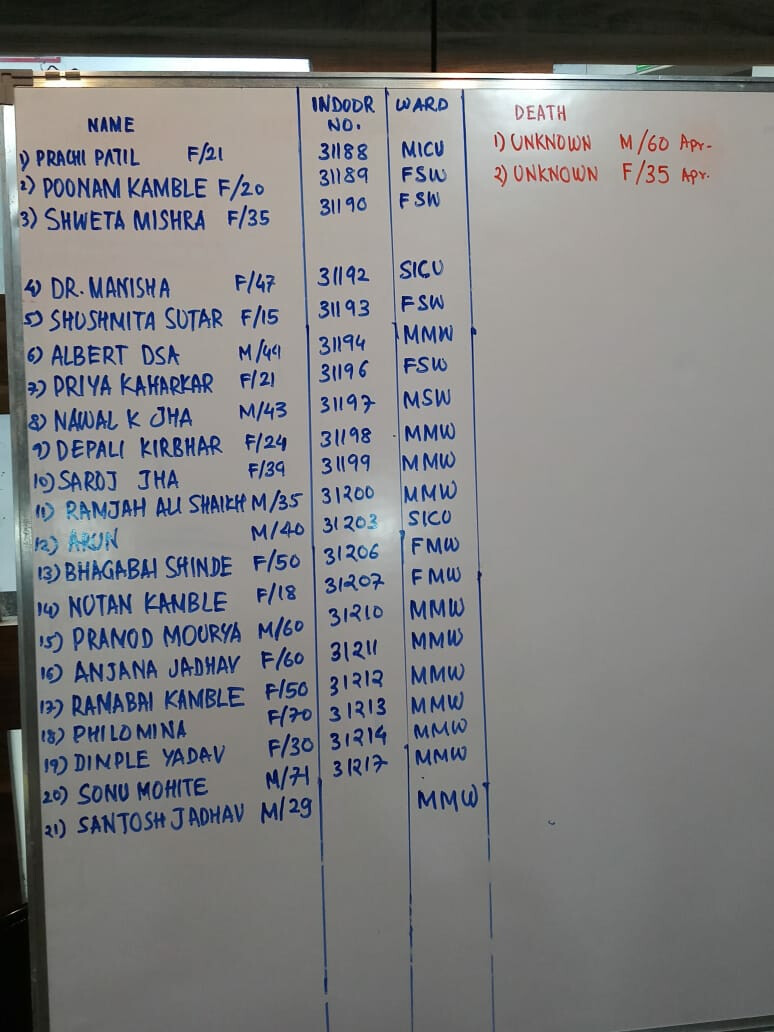 NAME INDOOR NO. WARD DEATH
1) PRACHI PATIL F/21 31188 MICU 1) UNKNOWN M/60 Apr-
2) POONAM KAMBLE F/20 31189 FSW 2) UNKNOWN F/35 Apr.
3) SHWETA MISHRA F/35 31190 FSW
4) DR. MANISHA F/47 31192 SICU
5) SHUSHMITA SUTAR F/15 31193 FSW
6) ALBERT DSA M/44 31194 MMW
7) PRIYA KAHARKAR F/21 31196 FSW
8) NAWAL K JHA M/43 31197 MSW
9) DEPALI KIRBHAR F/24 31198 MMW
10) SAROJ JHA F/39 31199 MMW
11) RAMJAH ALI SHAIKH M/35 31200 MMW
12) ARUN M/40 31203 SICU
13) BHAGABAI SHINDE F/50 31206 FMW
14) NOTAN KAMBLE F/18 31207 FMW
15) PRANOD MOURYA M/60 31210 MMW
16) ANJANA JADHAV F/60 31211 MMW
17) RAMABAI KAMBLE F/50 31212 MMW
18) PHILOMINA F/70 31213 MMW
19) DIMPLE YADAV F/30 31214 MMW
20) SONU MOHITE M/71 31217 MMW
21) SANTOSH JADHAV M/29 MMW